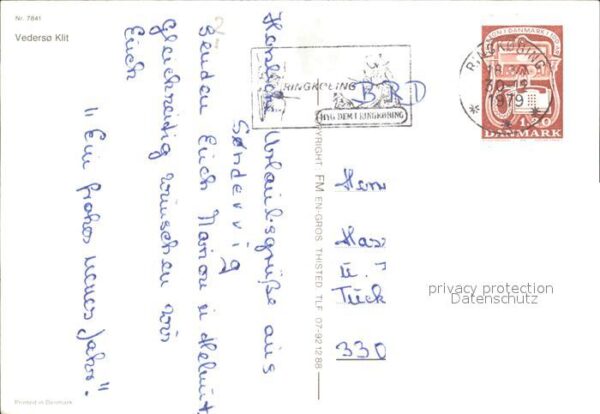 Nr. 7841
Vedersø Klit
Herzliche Urlaubsgrüße aus
Søndervig
senden Euch Marion u Helmut
Gleichzeitig wünschen wir
Euch
"Ein frohes neues Jahr."
RINGKØBING
HYG DEM I RINGKØBING
BRD
RINGKØBING
18
30-12
1979
1.20
DANMARK
COPYRIGHT FM EN-GROS THISTED. TLF. 07-92 12 88
Herr
Max
u.
Tück
330
privacy protection
Datenschutz
Printed in Denmark